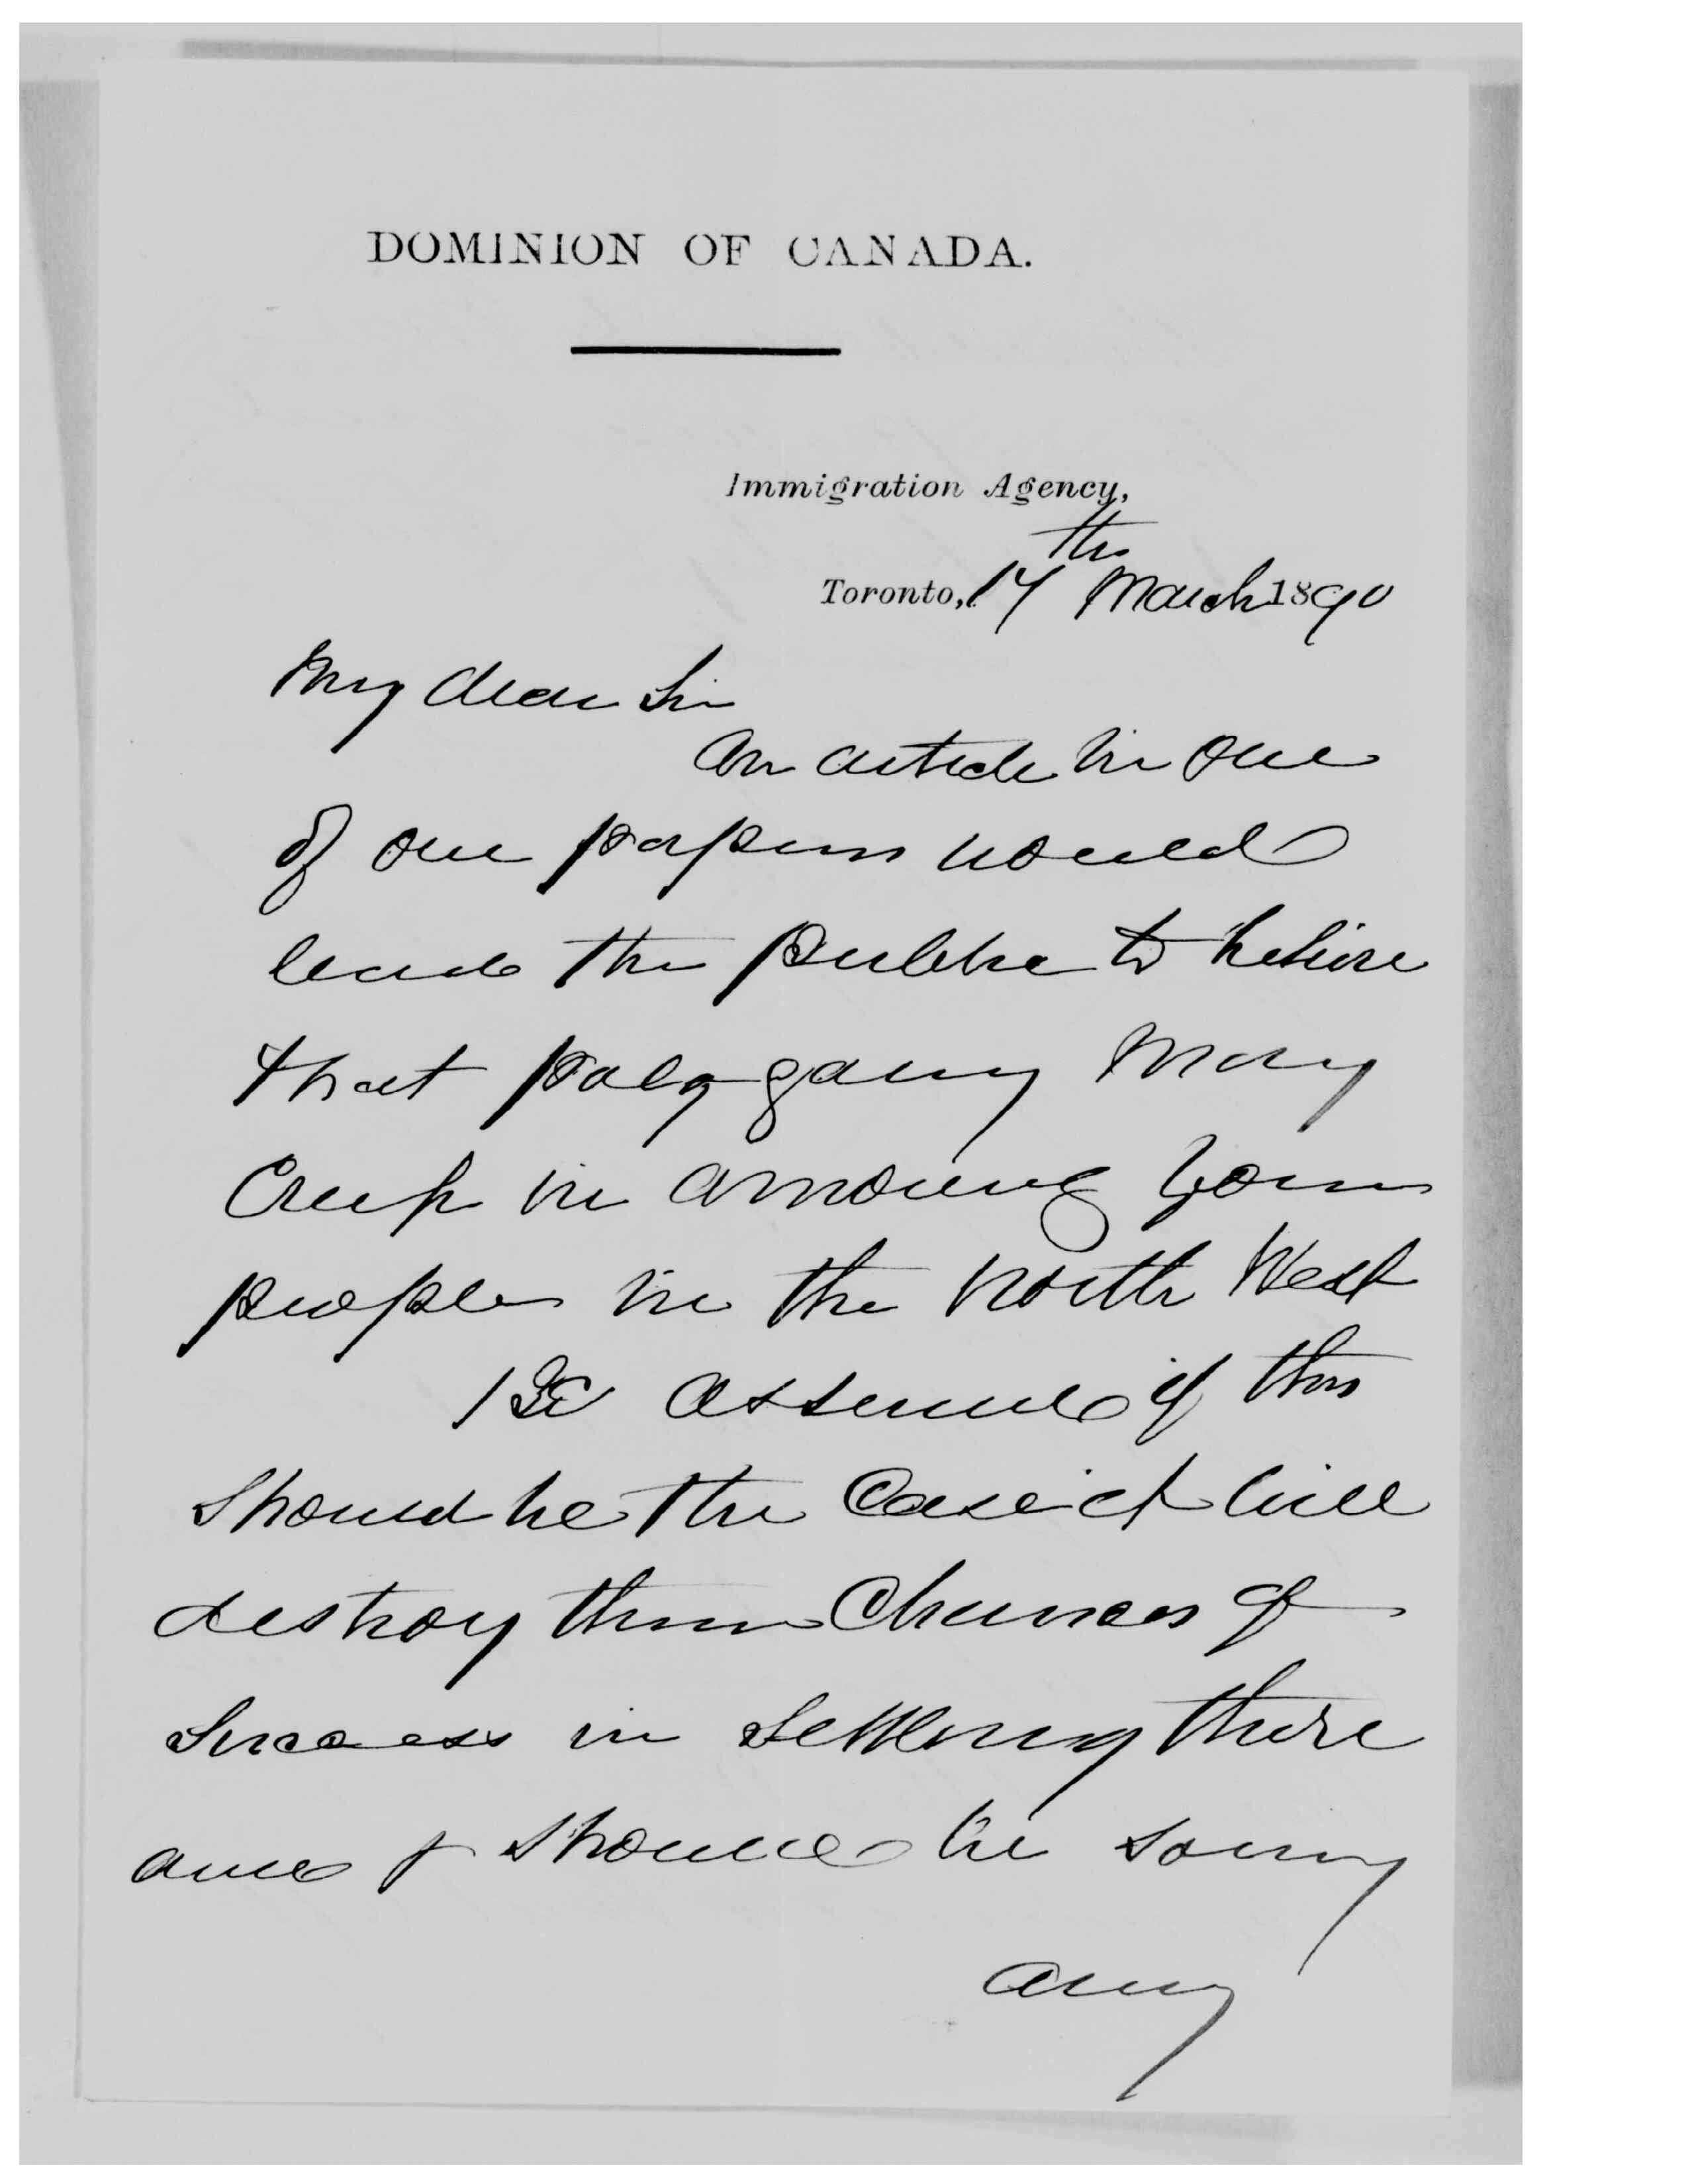 DOMINION OF CANADA.
Immigration Agency,
Toronto, 17th March 1890
My dear Sir
An article in one
of our papers would
lead the public to believe
that polygamy may
creep in among your
people in the North West
Be assured if this
should be the case it will
destroy their chances of
success in settling there
and I should be sorry
any